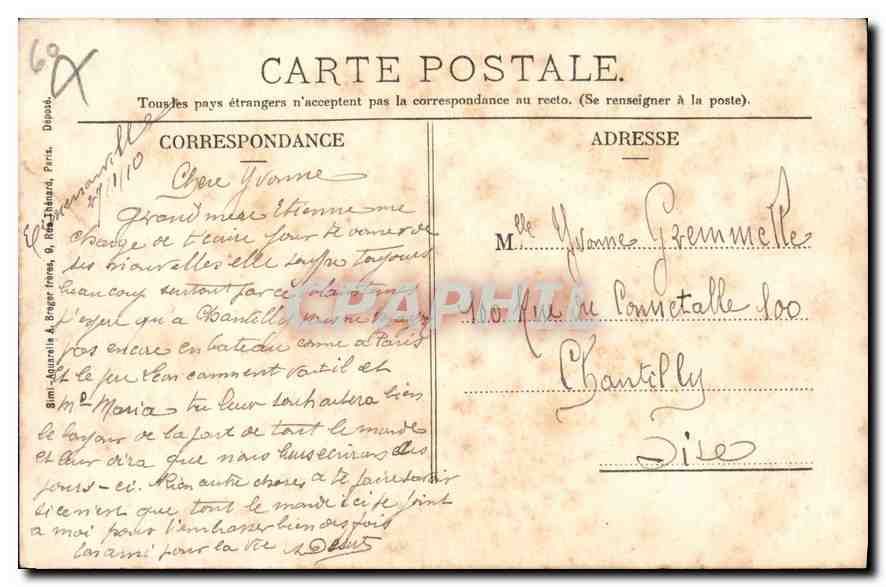 60
CARTE POSTALE.
Tous les pays étrangers n'acceptent pas la correspondance au recto. (Se renseigner à la poste).
CORRESPONDANCE
ADRESSE
Simi-Aquarelle A. Breger frères, 9, Rue Thénard, Paris. Déposé.
27/1/10
Chere Yvonne
Grand mere Etienne me
charge de t'ecrire pour te donner de
ses nouvelles elle souffre toujours
beaucoup surtout par ce
j'espere qu'a Chantilly
pas encore en bateau come a Paris
et le comment va t il et
Md Maria tu leur souhaitera bien
le bonjour de la part de tout le monde
et leur dira que nous leur ecrirons ces
jours-ci. Rien autre choses a te faire savoir
si ce n'est que tout le monde ici se joint
a moi pour t'embrasser bien des fois
ton ami pour la vie
Mlle Yvonne Gremmelle
100 Rue du Connetable 100
Chantilly
Oise
CPAPHIL